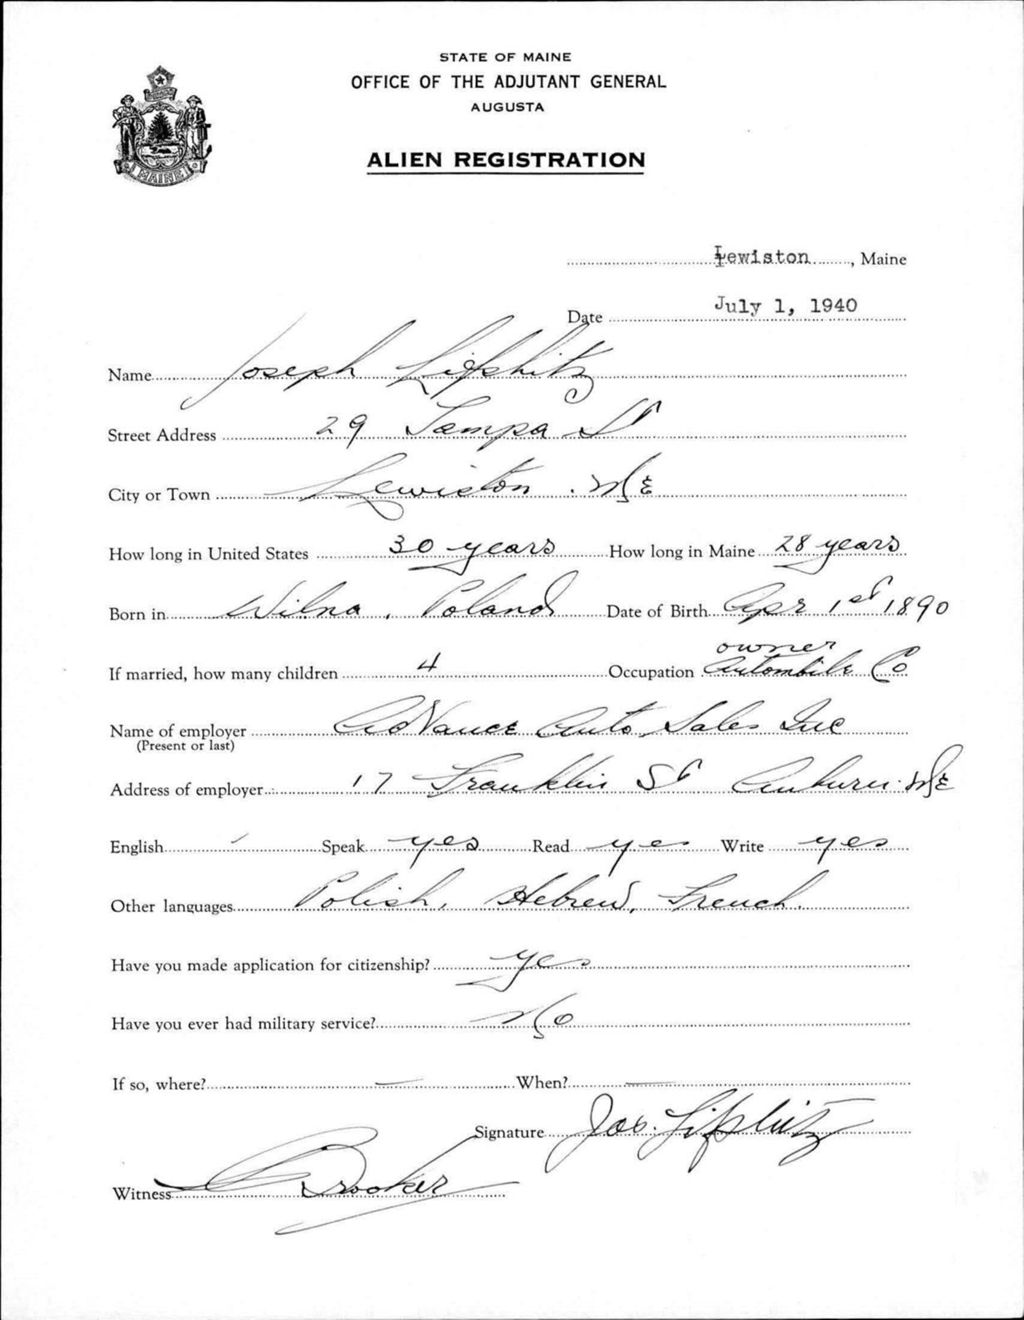 STATE OF MAINE
OFFICE OF THE ADJUTANT GENERAL
AUGUSTA
MAINE
ALIEN REGISTRATION
Lewiston, Maine
Date July 1, 1940
Name Joseph Lifshitz
Street Address 29 Tampa St
City or Town Lewiston. Me
How long in United States 30 years How long in Maine 28 years
Born in Wilna, Poland Date of Birth Apr 1st 1890
owner
If married, how many children 4 Occupation Automobile Co
Name of employer AdVance Auto Sales Inc
(Present or last)
Address of employer 17 Franklin St Auburn. Me
English Speak yes Read yes Write yes
Other languages Polish, Hebrew, French.
Have you made application for citizenship? yes
Have you ever had military service? No
If so, where? — When? —
Signature Jos. Lifshitz
Witness Brooker